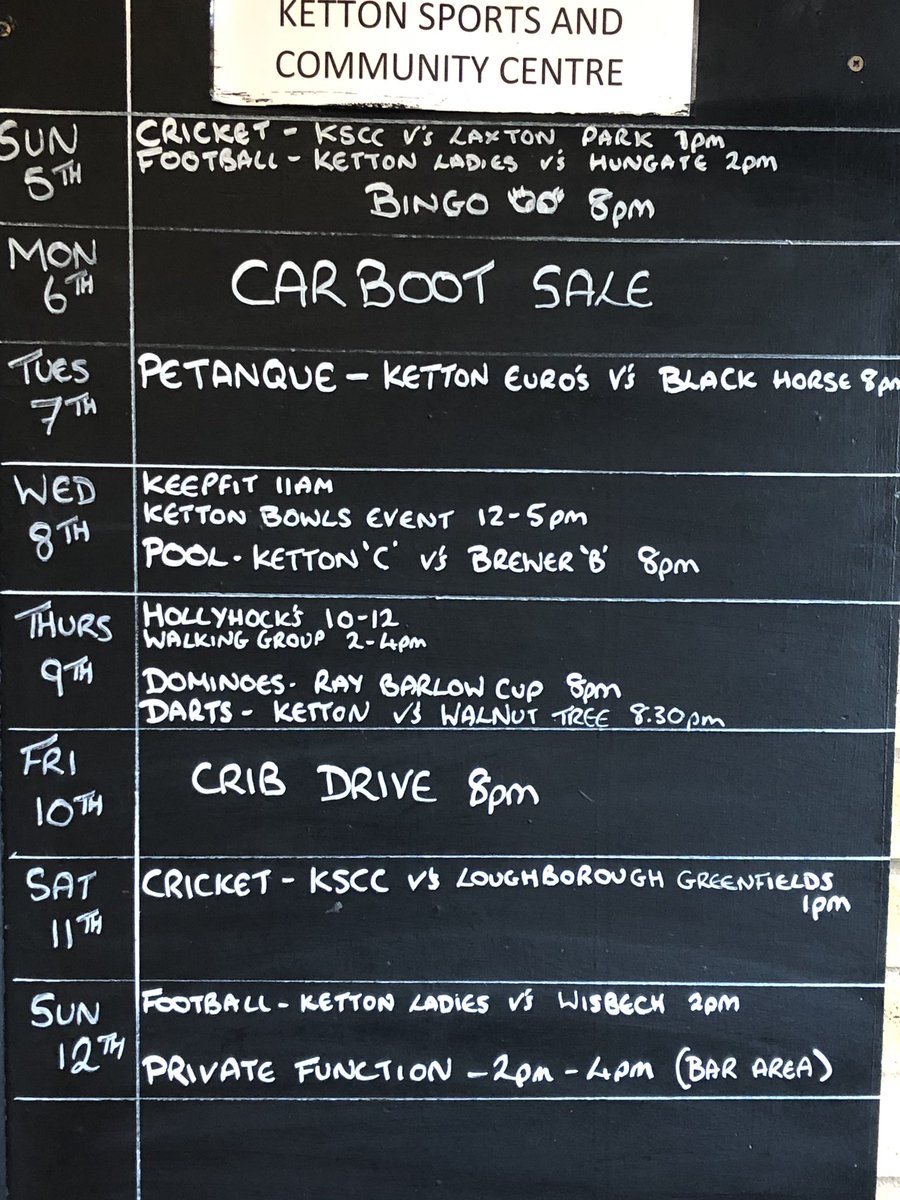 KETTON SPORTS AND
COMMUNITY CENTRE
SUN
5TH
CRICKET - KSCC V's LAXTON PARK 1pm
FOOTBALL - KETTON LADIES V's HUNGATE 2pm
BINGO 8pm
MON
6TH
CAR BOOT SALE
TUES
7TH
PETANQUE - KETTON EURO's V's BLACK HORSE 8pm
WED
8TH
KEEPFIT 11AM
KETTON BOWLS EVENT 12-5pm
POOL - KETTON 'C' V's BREWER 'B' 8pm
THURS
9TH
HOLLYHOCK's 10-12
WALKING GROUP 2-4pm
DOMINOES - RAY BARLOW CUP 8pm
DARTS - KETTON V's WALNUT TREE 8.30pm
FRI
10TH
CRIB DRIVE 8pm
SAT
11TH
CRICKET - KSCC V's LOUGHBOROUGH GREENFIELDS
1pm
SUN
12TH
FOOTBALL - KETTON LADIES V's WISBECH 2pm
PRIVATE FUNCTION - 2pm - 4pm (BAR AREA)